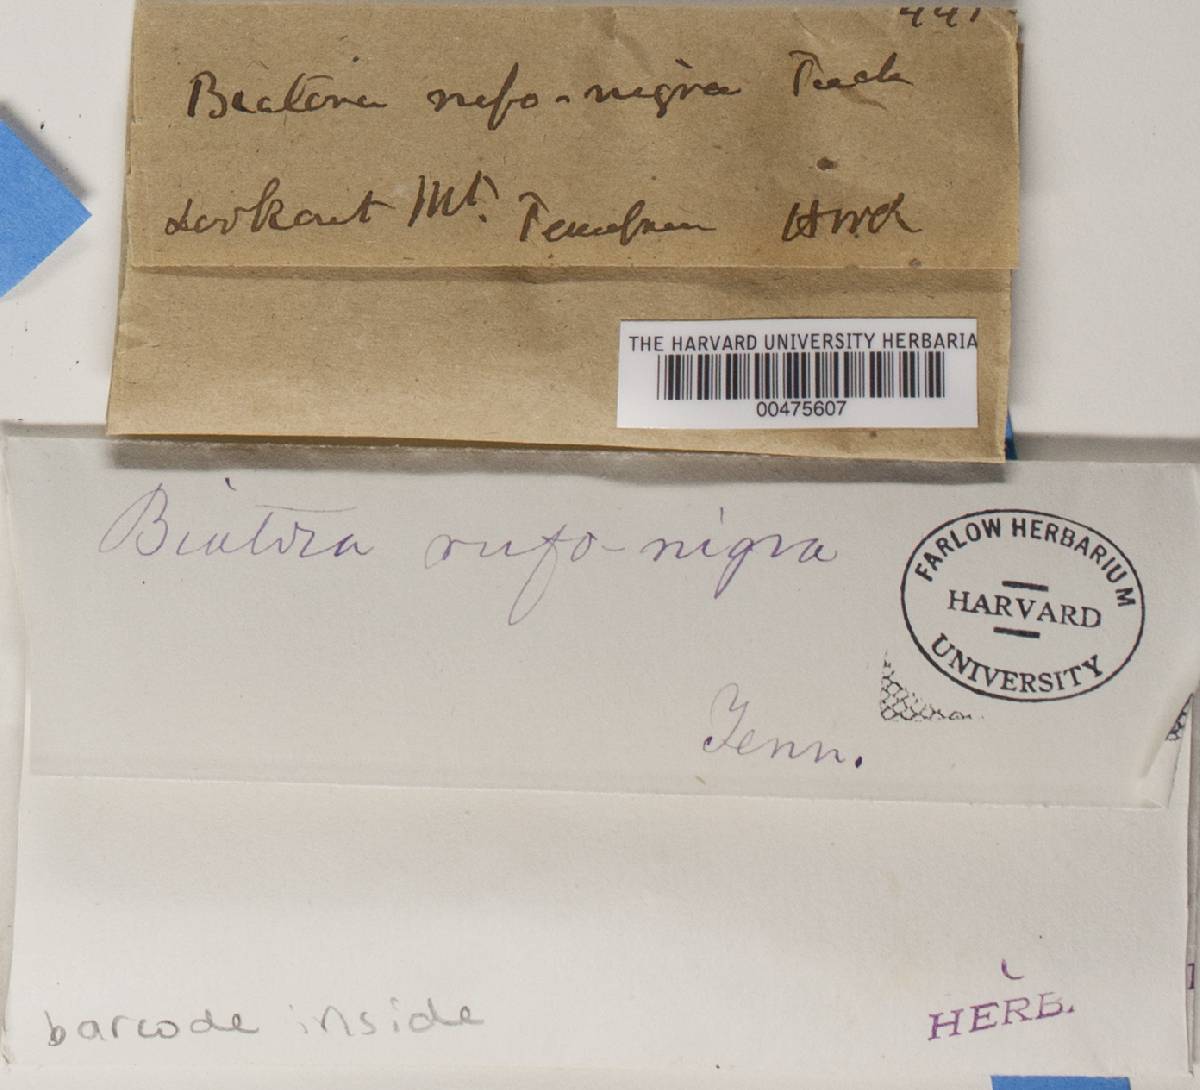 Biatora rufo-nigra Tuck
Lookout Mt.
THE HARVARD UNIVERSITY HERBARIA
00475607
Biatora rufo-nigra
FARLOW HERBARIUM
HARVARD
UNIVERSITY
Tenn.
barcode inside
HERB.